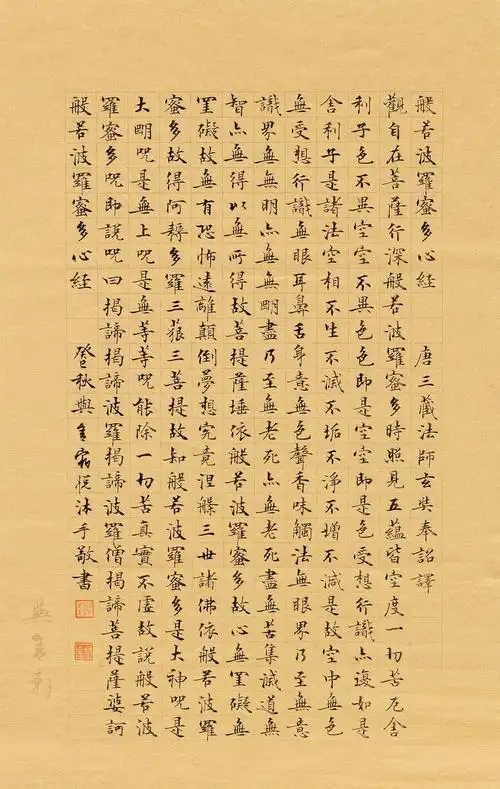 般若波羅蜜多心経　唐三藏法師玄奘奉詔譯
觀自在菩薩行深般若波羅蜜多時照見五蘊皆空度一切苦厄舍
利子色不異空空不異色色即是空空即是色受想行識亦復如是
舍利子是諸法空相不生不滅不垢不淨不增不減是故空中無色
無受想行識無眼耳鼻舌身意無色聲香味觸法無眼界乃至無意
識界無無明亦無無明盡乃至無老死亦無老死盡無苦集滅道無
智亦無得以無所得故菩提薩埵依般若波羅蜜多故心無罣礙無
罣礙故無有恐怖遠離顛倒夢想究竟涅槃三世諸佛依般若波羅
蜜多故得阿耨多羅三藐三菩提故知般若波羅蜜多是大神咒是
大明咒是無上咒是無等等咒能除一切苦真實不虛故說般若波
羅蜜多咒即說咒曰揭諦揭諦波羅揭諦波羅僧揭諦菩提薩婆訶
般若波羅蜜多心経　秋悅沐手敬書